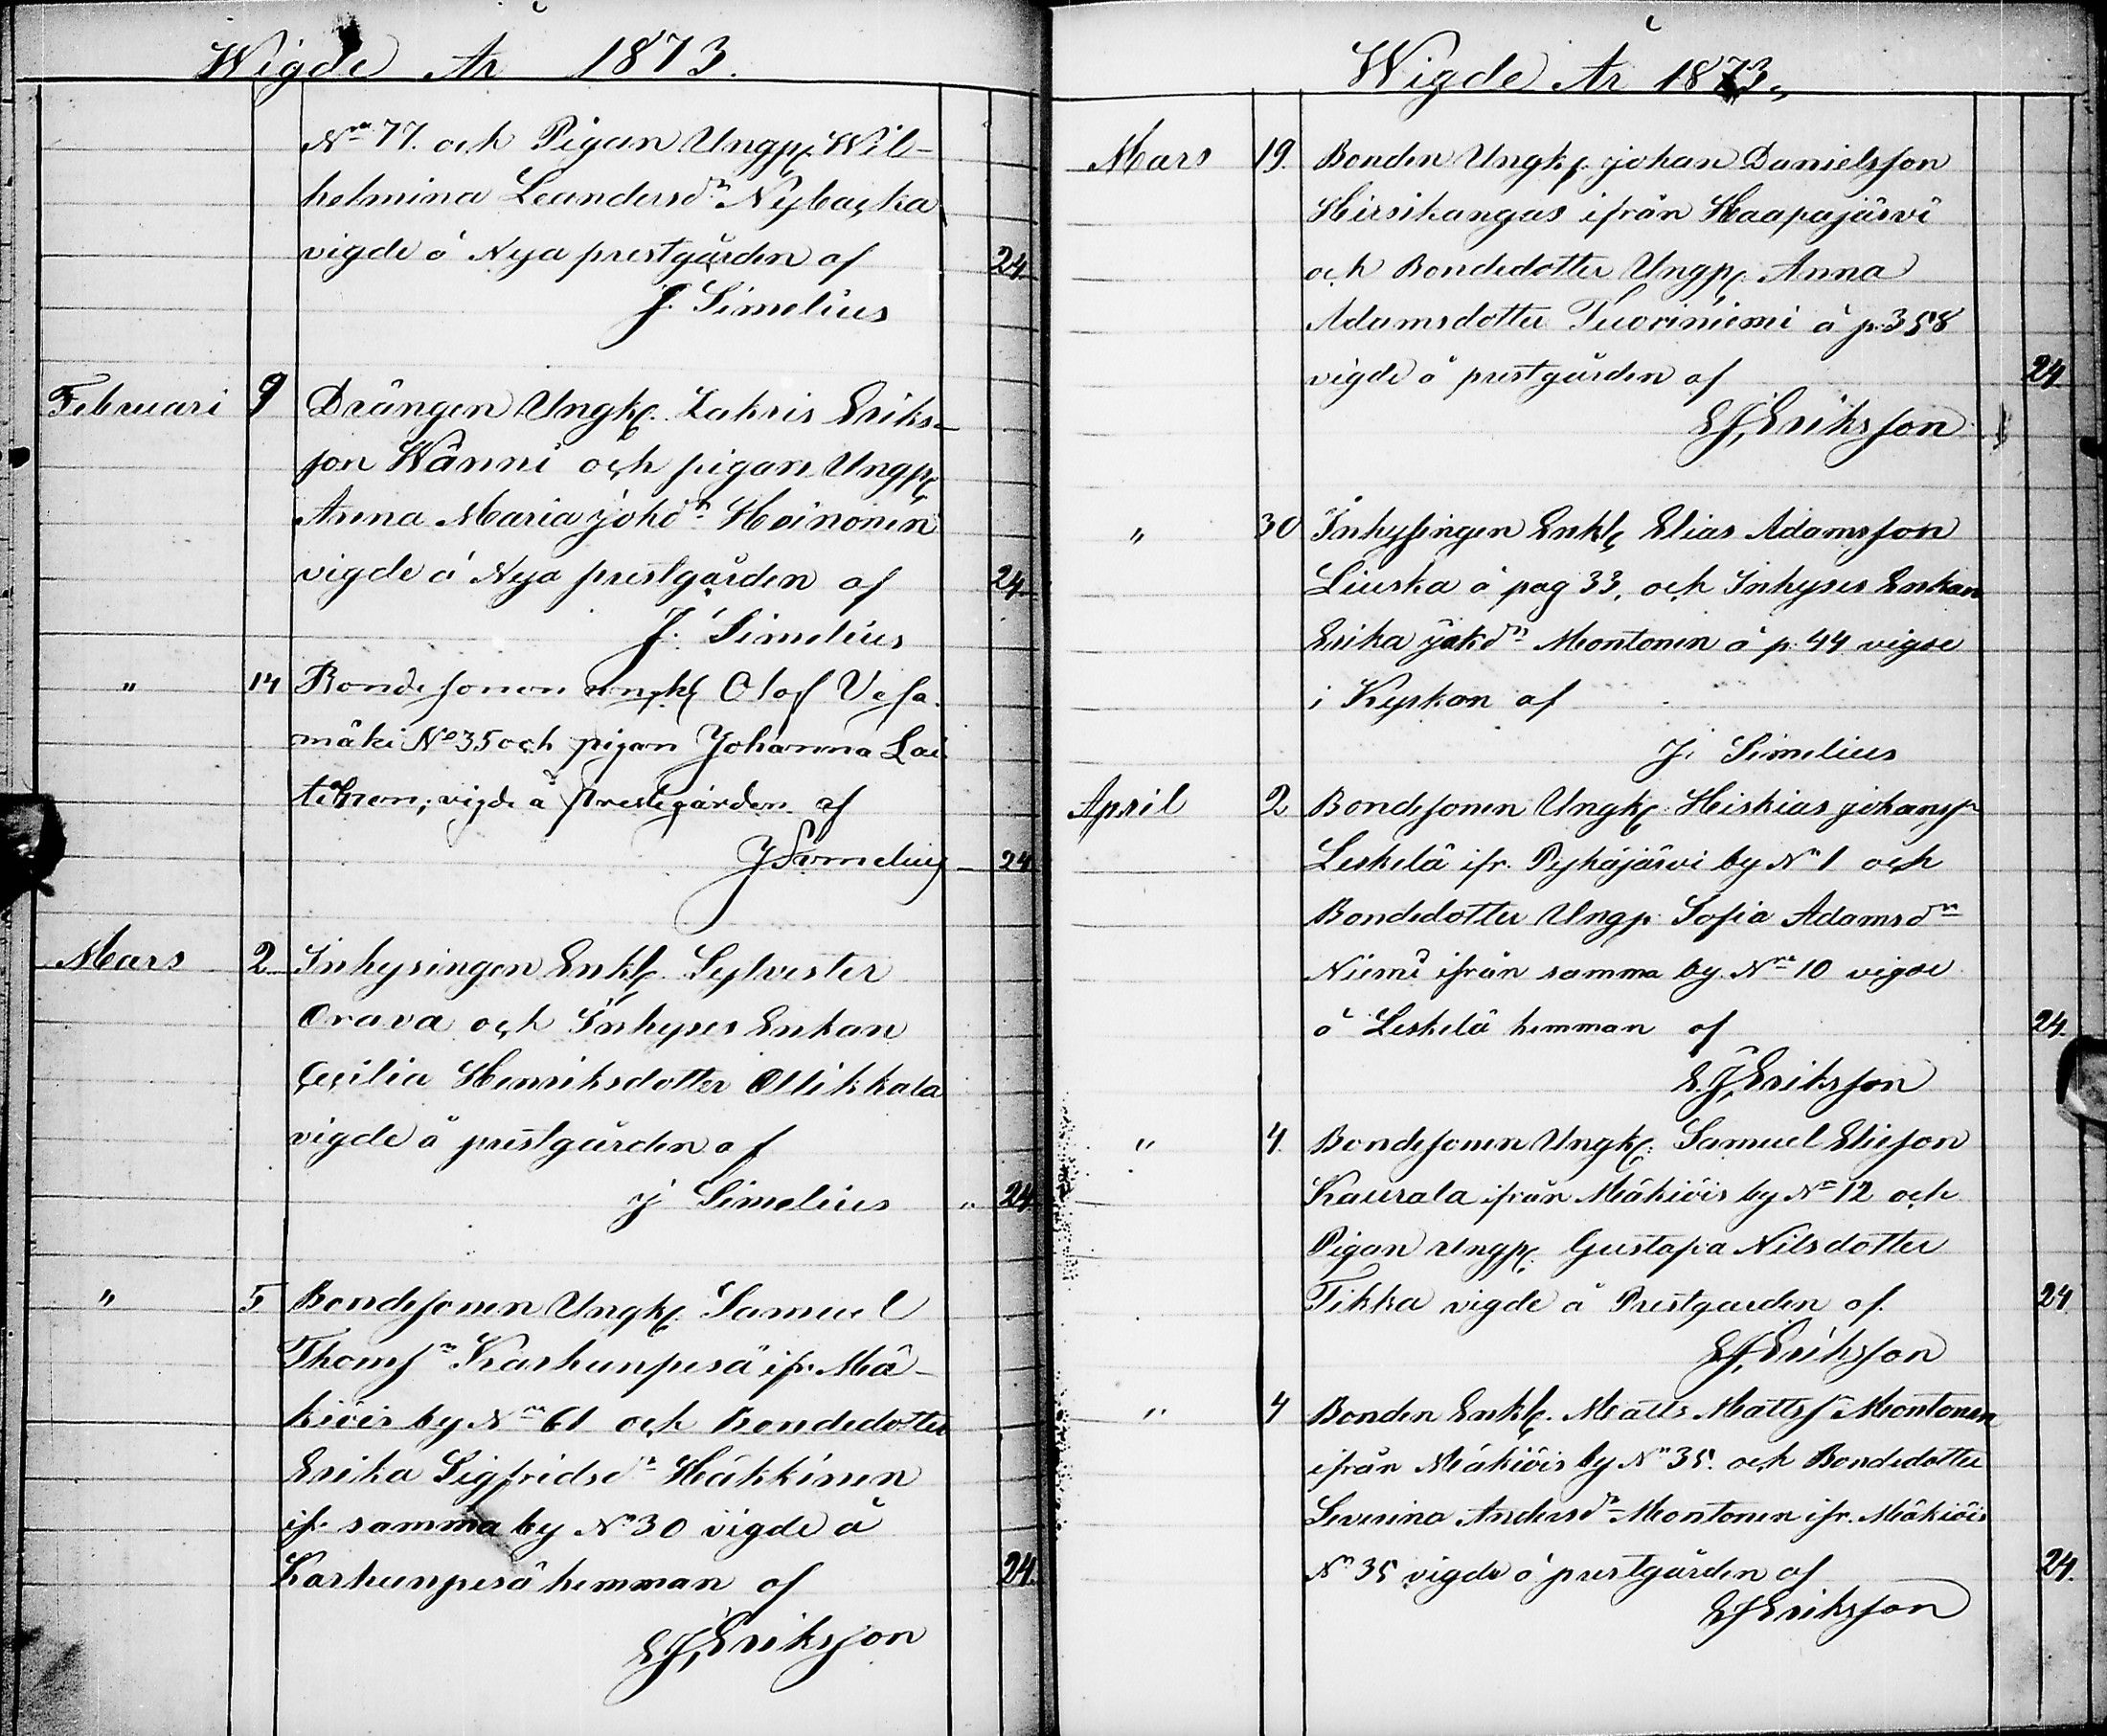 Wigde År 1873.
No 77. och Pigan Ungp. Wil-
helmina Leandersdr Nybacka
vigde å Nya prestgården af 24
J. Simelius
Februari 9 Drängen Ungk. Zakris Eriks-
son Wänni och pigan Ungp.
Anna Maria Johdr Hoinonen
vigde å Nya prestgården af 24
J. Simelius
" 14 Bondesonen ungk. Olof Vesa-
mäki No 35 och pigan Johanna Lai-
tinen; vigde å Prestegården af
J Simelius 24
Mars 2 Inhysingen Enkl. Sylvester
Orava och Inhyses Enkan
Cecilia Henriksdotter Ollikkala
vigde å prestgården af
J Simelius " 24
" 5 Bondesonen Ungk. Samuel
Thomsn Karhunpesä ifr. Mä-
kiöis by No 61 och Bondedotter
Erika Sigfridsdr Häkkinen
ifr. samma by No 30 vigde å
Karhunpesä hemman af 24.
EJ, Eriksson
Wigde År 1873.
Mars 19. Bonden Ungk. Johan Danielsson
Hirsikangas ifrån Haapajärvi
och Bondedotter Ungp. Anna
Adamsdotter Tuoriniemi å p. 358
vigde å prestgården af 24.
EJ, Eriksson
" 30 Inhysingen Enkl. Elias Adamsson
Liuska å pag 33, och Inhyses Enkan
Erika Jakdr Montonen å p. 44 vigde
i Kyrkan af
J. Simelius
April 2 Bondesonen Ungk. Hiskias Johanss
Leskelä ifr. Pyhäjärvi by No 1 och
Bondedotter Ungp. Sofia Adamsdr
Niemi ifrån samma by No 10 vigde
å Leskelä hemman af 24.
E.J, Eriksson
" 4. Bondesonen Ungk. Samuel Eliesson
Kaurala ifrån Mäkiöis by No 12 och
Pigan Ungp. Gustafva Nilsdotter
Tikka vigde å Prestgården af. 24
EJ, Eriksson
" 4 Bonden Enkl. Matts Mattsn Montonen
ifrån Mäkiöis by No 35. och Bondedotter
Severina Andersdr Montonen ifr. Mäkiöis
No 35 vigde å prestgården af 24.
EJ Eriksson